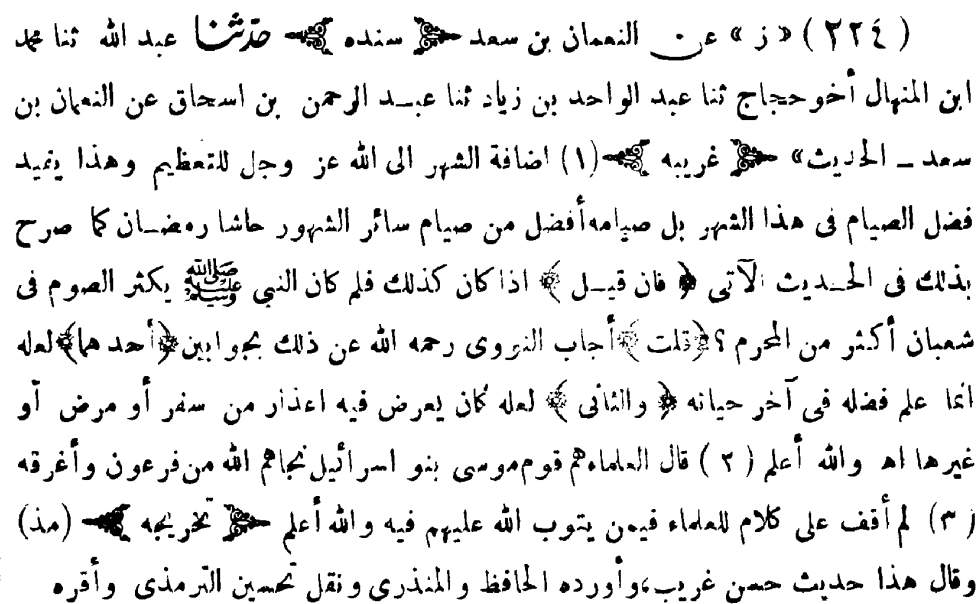 (٢٢٤) «ز» عن النعمان بن سعد ﴿ سنده ﴾ حدثنا عبد الله ثنا محمد
ابن المنهال أخو حجاج ثنا عبد الواحد بن زياد ثنا عبد الرحمن بن اسحاق عن النعمان بن
سعد ـ الحديث» ﴿ غريبه ﴾ (١) اضافة الشهر الى الله عز وجل للتعظيم وهذا يفيد
فضل الصيام فى هذا الشهر بل صيامه أفضل من صيام سائر الشهور حاشا رمضان كما صرح
بذلك فى الحديث الآتى ﴿ فان قيل ﴾ اذا كان كذلك فلم كان النبي ﷺ يكثر الصوم فى
شعبان أكثر من المحرم ؟ ﴿ قلت ﴾ أجاب النووى رحمه الله عن ذلك بجوابين ﴿ أحدهما ﴾ لعله
انما علم فضله فى آخر حياته ﴿ والثانى ﴾ لعله كان يعرض فيه اعذار من سفر أو مرض أو
غيرها اهـ والله أعلم (٢) قال العلماء هم قوم موسى بنو اسرائيل نجاهم الله من فرعون وأغرقه
(٣) لم أقف على كلام للعلماء فيمن يتوب الله عليهم فيه والله أعلم ﴿ تخريجه ﴾ (مذ)
وقال هذا حديث حسن غريب، وأورده الحافظ والمنذرى ونقل تحسين الترمذى وأقره